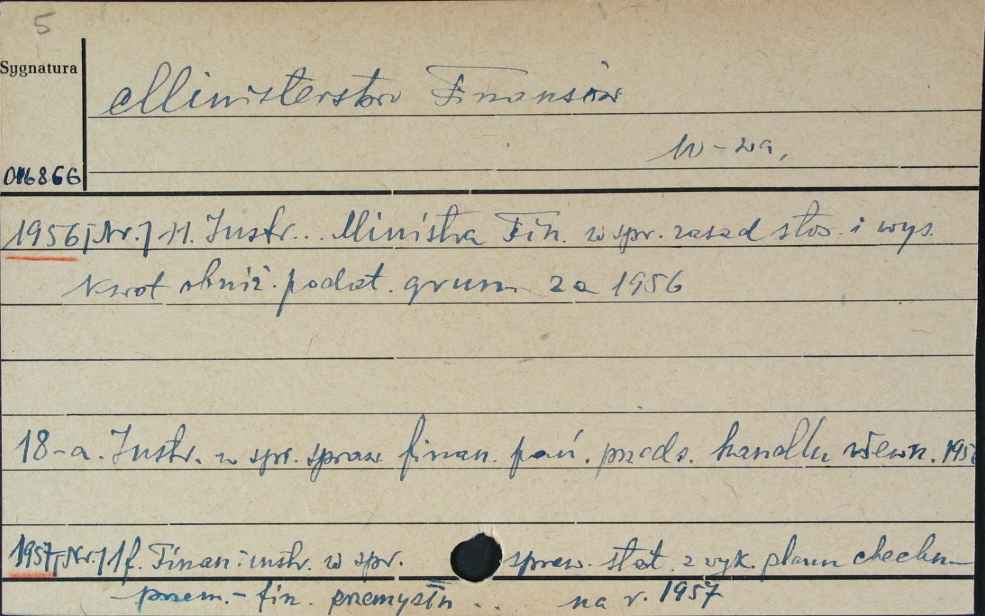 5
Sygnatura
Ministerstwo Finansów
W-wa,
016866
1956 [Nr.] 11. Instr... Ministra Fin. w spr. zasad stos. i wys.
kwot obniż. podat. grun. za 1956
18-a. Instr. w spr. spraw finan. pań. przeds. handlu wewn. 195
1957 [Nr.] 1f. Finan: instr. w spr. spraw. stat. z wyk. planu
przem.-fin. przemysłu .. na r. 1957